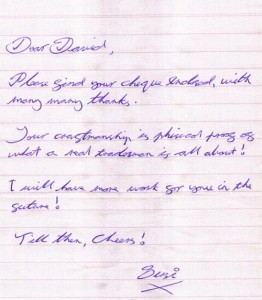 Dear David,
Please find your cheque Enclosed, with
many many thanks.
Your craftmanship is phisical proof of
what a real tradesman is all about!
I will have more work for you in the
future!
Till then, Cheers!
Susi
X